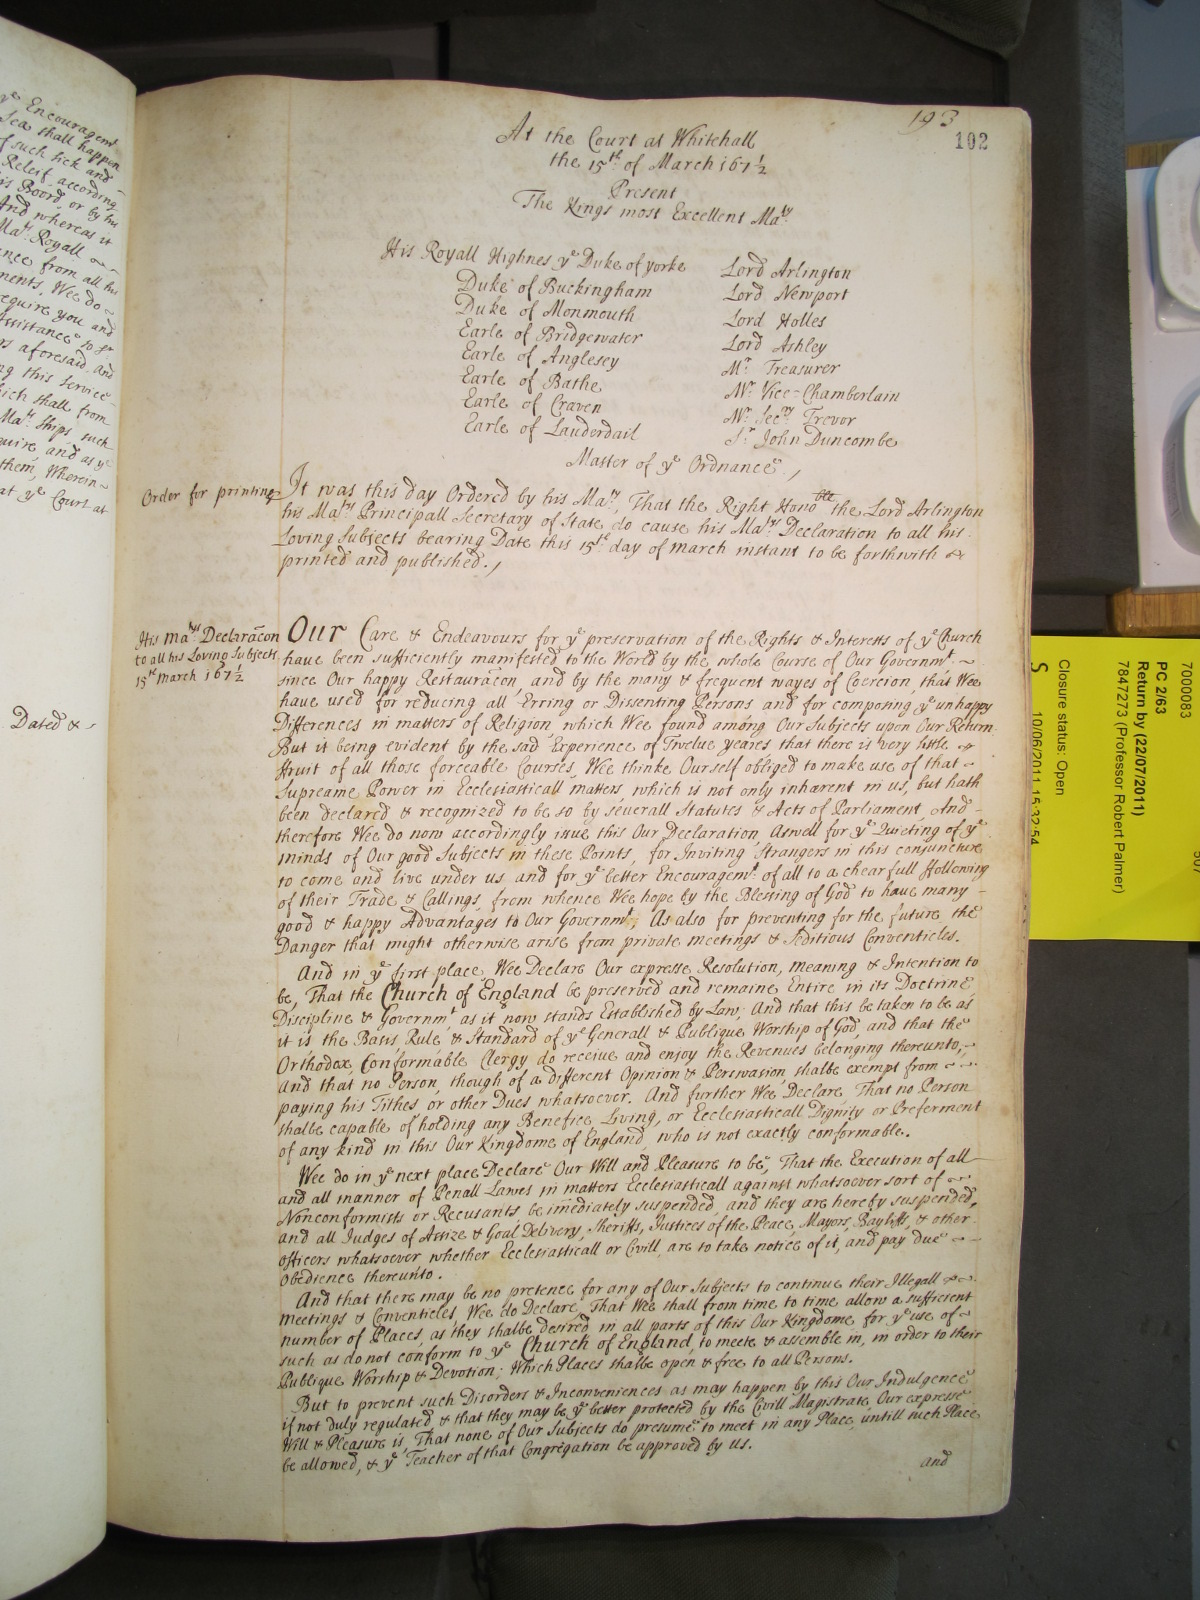 ye Encouragemt
Sea shall happen
of such sick and
Releif according
his Board, or by his
And whereas it
Mats Royall
ance from all his
ments. Wee do
require you and
Assistance to ye
as aforesaid. And
ng this Service
hich shall from
Mats Ships, such
quire, and as ye
them, Wherein
at ye Court at
Dated &
193
102
At the Court at Whitehall
the 15th of March 167½
Present
The Kings most Excellent Maty
His Royall Highnes ye Duke of yorke
Duke of Buckingham
Duke of Monmouth
Earle of Bridgewater
Earle of Anglesey
Earle of Bathe
Earle of Craven
Earle of Lauderdail
Lord Arlington
Lord Newport
Lord Holles
Lord Ashley
Mr Treasurer
Mr Vice=Chamberlain
Mr Secry Trevor
Sr John Duncombe
Master of ye Ordnance,
Order for printing
It was this day Ordered by his Maty, That the Right Honoble the Lord Arlington
his Mats Principall Secretary of State do cause his Mats Declaration to all his
Loving Subjects bearing Date this 15th day of March instant to be forthwith
printed and published.,
His Mats Declaracon
to all his Loving Subjects
15th March 167½
Our Care & Endeavours for ye preservation of the Rights & Interests of ye Church
have been sufficiently manifested to the World by the whole Course of Our Governmt.
since Our happy Restauracon, and by the many & frequent wayes of Coercion, that Wee
have used for reducing all Erring or Dissenting Persons and for composing ye unhappy
Differences in matters of Religion, which Wee found among Our Subjects upon Our Return.
But it being evident by the sad Experience of Twelve yeares that there is very little
fruit of all those forceable Courses, Wee thinke Ourself obliged to make use of that
Supreame Power in Ecclesiasticall matters which is not only inherent in us, but hath
been declared & recognized to be so by severall Statutes & Acts of Parliament, And
therefore Wee do now accordingly issue this Our Declaration, Aswell for ye Quieting of ye
minds of Our good Subjects in these Points, for Inviting Strangers in this conjuncture
to come and live under us, and for ye better Encouragemt. of all to a chearfull ffollowing
of their Trade & Callings, from whence Wee hope by the Blessing of God to have many
good & happy Advantages to Our Governmt; As also for preventing for the future the
Danger that might otherwise arise from private meetings & Seditious Conventicles.
And in ye first place, Wee Declare Our expresse Resolution, meaning & Intention to
be, That the Church of England be preserved and remaine Entire in its Doctrine
Discipline & Governmt. as it now stands Established by Law, And that this be taken to be as
it is the Basis Rule & Standard of ye Generall & Publique Worship of God, and that the
Orthodox Conformable Clergy do receive and enjoy the Revenues belonging thereunto,
And that no Person, though of a different Opinion & Perswasion, shalbe exempt from
paying his Tithes or other Dues whatsoever. And further Wee Declare, That no Person
shalbe capable of holding any Benefice, Living, or Ecclesiasticall Dignity or Preferment
of any kind in this Our Kingdome of England, who is not exactly conformable.
Wee do in ye next place Declare Our Will and Pleasure to be, That the Execution of all
and all manner of Penall Lawes in matters Ecclesiasticall against whatsoever sort of
Nonconformists or Recusants be imediately suspended, and they are hereby suspended,
and all Judges of Assize & Goal Delivery, Sheriffs, Justices of the Peace, Mayors, Bayliffs, & other
officers whatsoever whether Ecclesiasticall or Civill, are to take notice of it, and pay due
obedience thereunto.
And that there may be no pretence for any of Our Subjects to continue their Illegall
meetings & Conventicles, Wee do Declare, That Wee shall from time to time allow a sufficient
number of Places, as they shalbe desired in all parts of this Our Kingdome, for ye use of
such as do not conform to ye Church of England, to meete & assemble in, in order to their
Publique Worship & Devotion; Which Places shalbe open & free to all Persons.
But to prevent such Disorders & Inconveniences as may happen by this Our Indulgence
if not duly regulated, & that they may be ye better protected by the Civill Magistrate, Our expresse
Will & Pleasure is, That none of Our Subjects do presume to meet in any Place, untill such Place
be allowed, & ye Teacher of that Congregation be approved by us.
and
7000083
PC 2/63
Return by (22/07/2011)
7847273 (Professor Robert Palmer)
Closure status: Open
S 10/06/2011 15:32:54